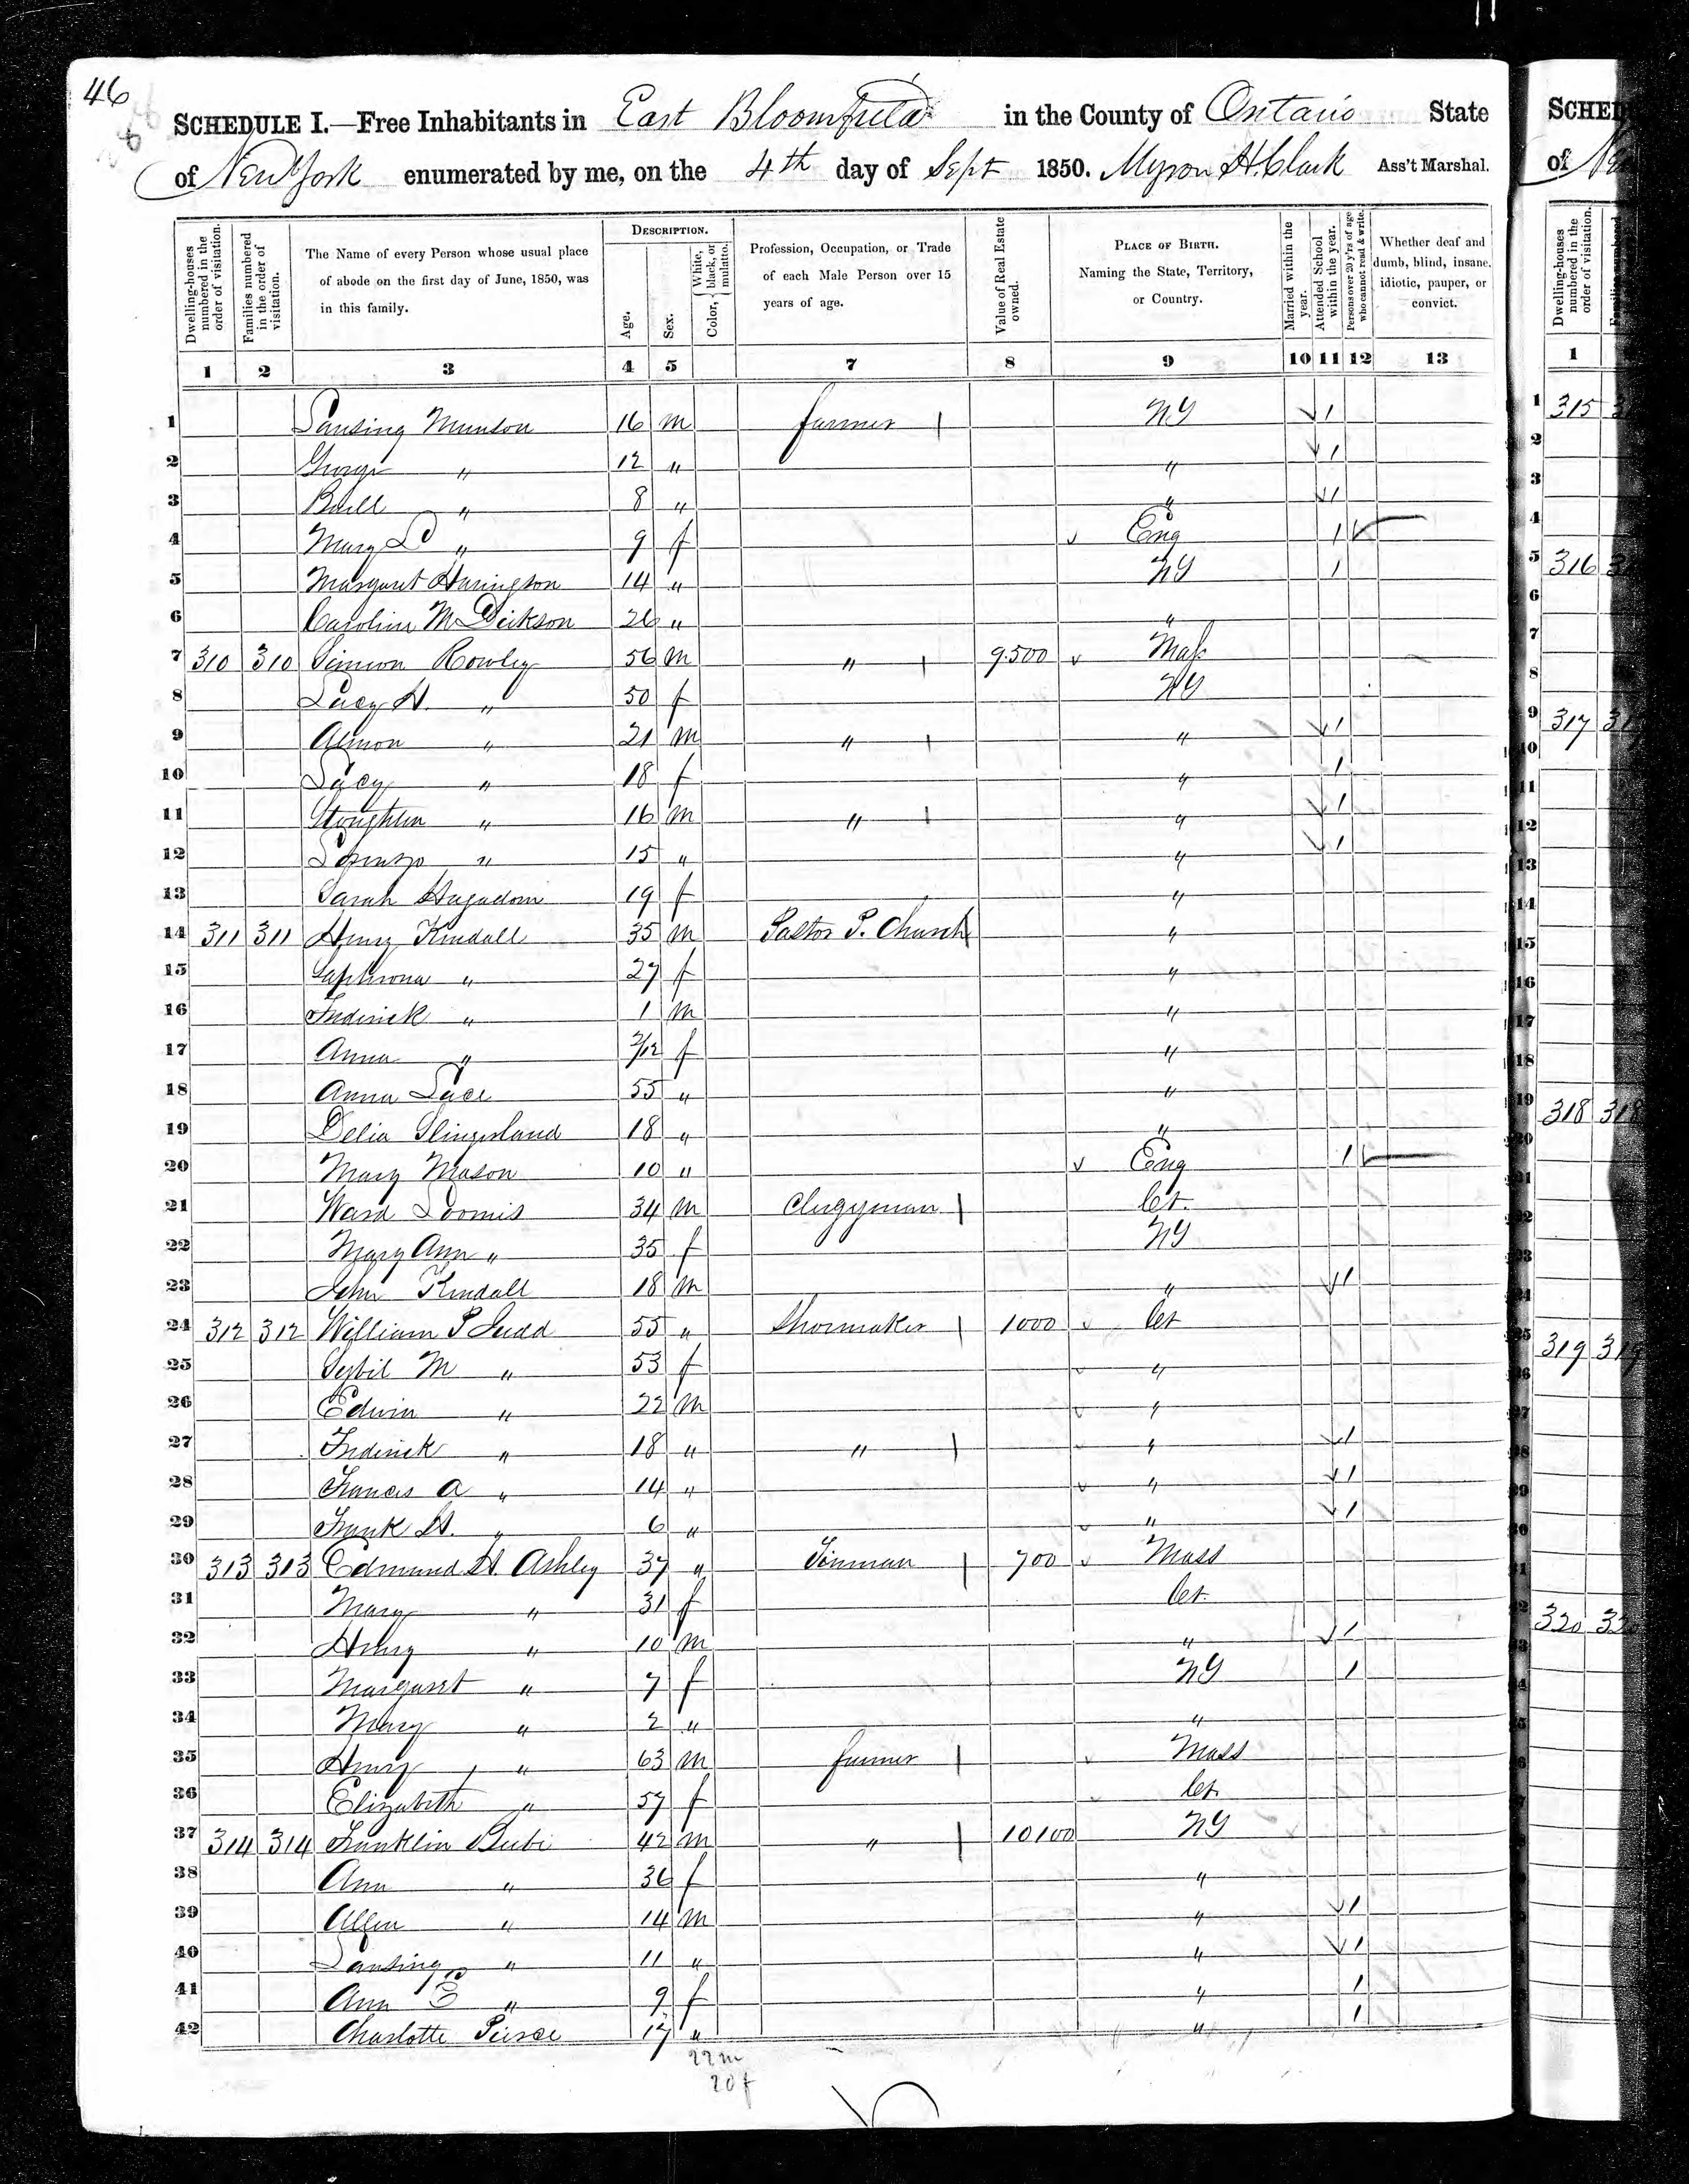 46
SCHEDULE I.—Free Inhabitants in East Bloomfield in the County of Ontario State
of New York enumerated by me, on the 4th day of Sept 1850. Myron H. Clark Ass't Marshal.
Dwelling-houses numbered in the order of visitation.
Families numbered in the order of visitation.
The Name of every Person whose usual place of abode on the first day of June, 1850, was in this family.
DESCRIPTION.
Age.
Sex.
Color, { White, black, or mulatto.
Profession, Occupation, or Trade of each Male Person over 15 years of age.
Value of Real Estate owned.
PLACE OF BIRTH. Naming the State, Territory, or Country.
Married within the year.
Attended School within the year.
Persons over 20 y'rs of age who cannot read & write.
Whether deaf and dumb, blind, insane, idiotic, pauper, or convict.
1 2 3 4 5 7 8 9 10 11 12 13
1 Lansing Munson 16 m farmer NY 1
2 George " 12 " " 1
3 Buell " 8 " " 1
4 Mary L " 9 f Eng 1
5 Margaret Harington 14 " NY 1
6 Caroline M Dickson 26 " "
7 310 310 Simeon Rowley 56 m " 9.500 Mass
8 Lucy H. " 50 f NY
9 Almon " 21 m " " 1
10 Lucy " 18 f " 1
11 Stoughton " 16 m " " 1
12 Lorenzo " 15 " " 1
13 Sarah Hagadorn 19 f "
14 311 311 Henry Kendall 35 m Pastor P. Church "
15 Saphrona " 27 f "
16 Frederick " 1 m "
17 Anna " 2/12 f "
18 Anna Luce 55 " "
19 Delia Slingerland 18 " "
20 Mary Mason 10 " Eng 1
21 Ward Loomis 34 m Clergyman Ct.
22 Mary Ann " 35 f NY
23 John Kendall 18 m " 1
24 312 312 William P Judd 55 " Shoemaker 1000 Ct
25 Sybil M " 53 f "
26 Edwin " 22 m "
27 Frederick " 18 " " " 1
28 Francis A " 14 " " 1
29 Frank H. " 6 " " 1
30 313 313 Edmund H Ashley 37 " Tinman 700 Mass
31 Mary " 31 f Ct.
32 Henry " 10 m " 1
33 Margaret " 7 f NY 1
34 Mary " 2 " "
35 Henry " 63 m farmer Mass
36 Elizabeth " 57 f Ct.
37 314 314 Franklin Beebe 42 m " 10100 NY
38 Ann " 36 f "
39 Allen " 14 m " 1
40 Lansing " 11 " " 1
41 Ann E " 9 f " 1
42 Charlotte Pierce 17 " " 1
22 m
20 f
SCHED
of Ne
Dwelling-houses numbered in the order of visitation.
1
315
316
317
318 318
319 319
320